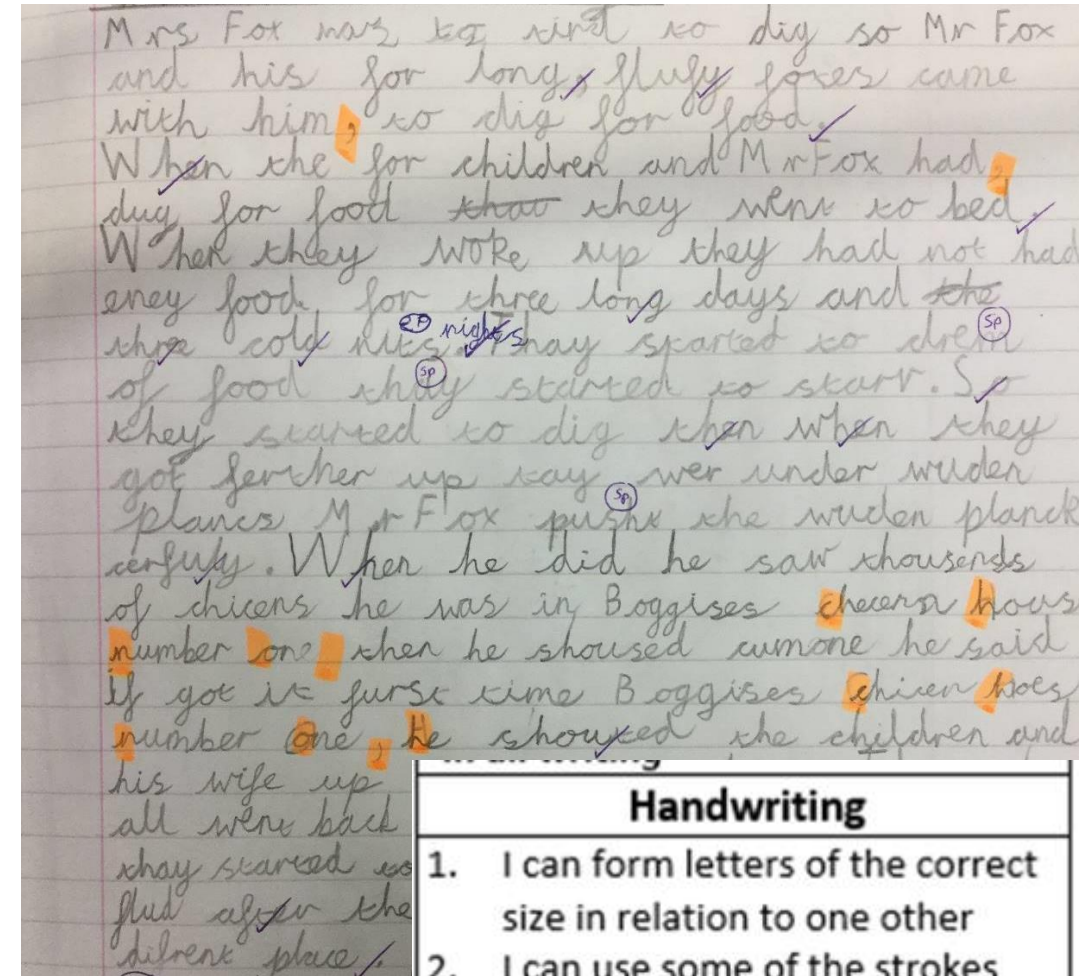 Mrs Fox was to tird to dig so Mr Fox
and his for long, flufy foxes came
with him, to dig for food.
When the for children and Mr Fox had,
dug for food thay they went to bed.
When they woke up they had not had
eney food for three long days and the
thre cold nits. Thay started to drem
sp nights
sp
of food thay started to starv. So
sp
they started to dig then when they
got ferther up tay wer under wuden
plancs Mr Fox pusht the wuden planck
sp
cerfuly. When he did he saw thousends
of chicens he was in Boggises checern hous
number one then he shoused cumone he said
If got it furst time Boggises chicen hoes
number one, he shouted the children and
his wife up
all went back
thay started to
flud after the
difrent place.
Handwriting
1. I can form letters of the correct
size in relation to one other
2. I can use some of the strokes